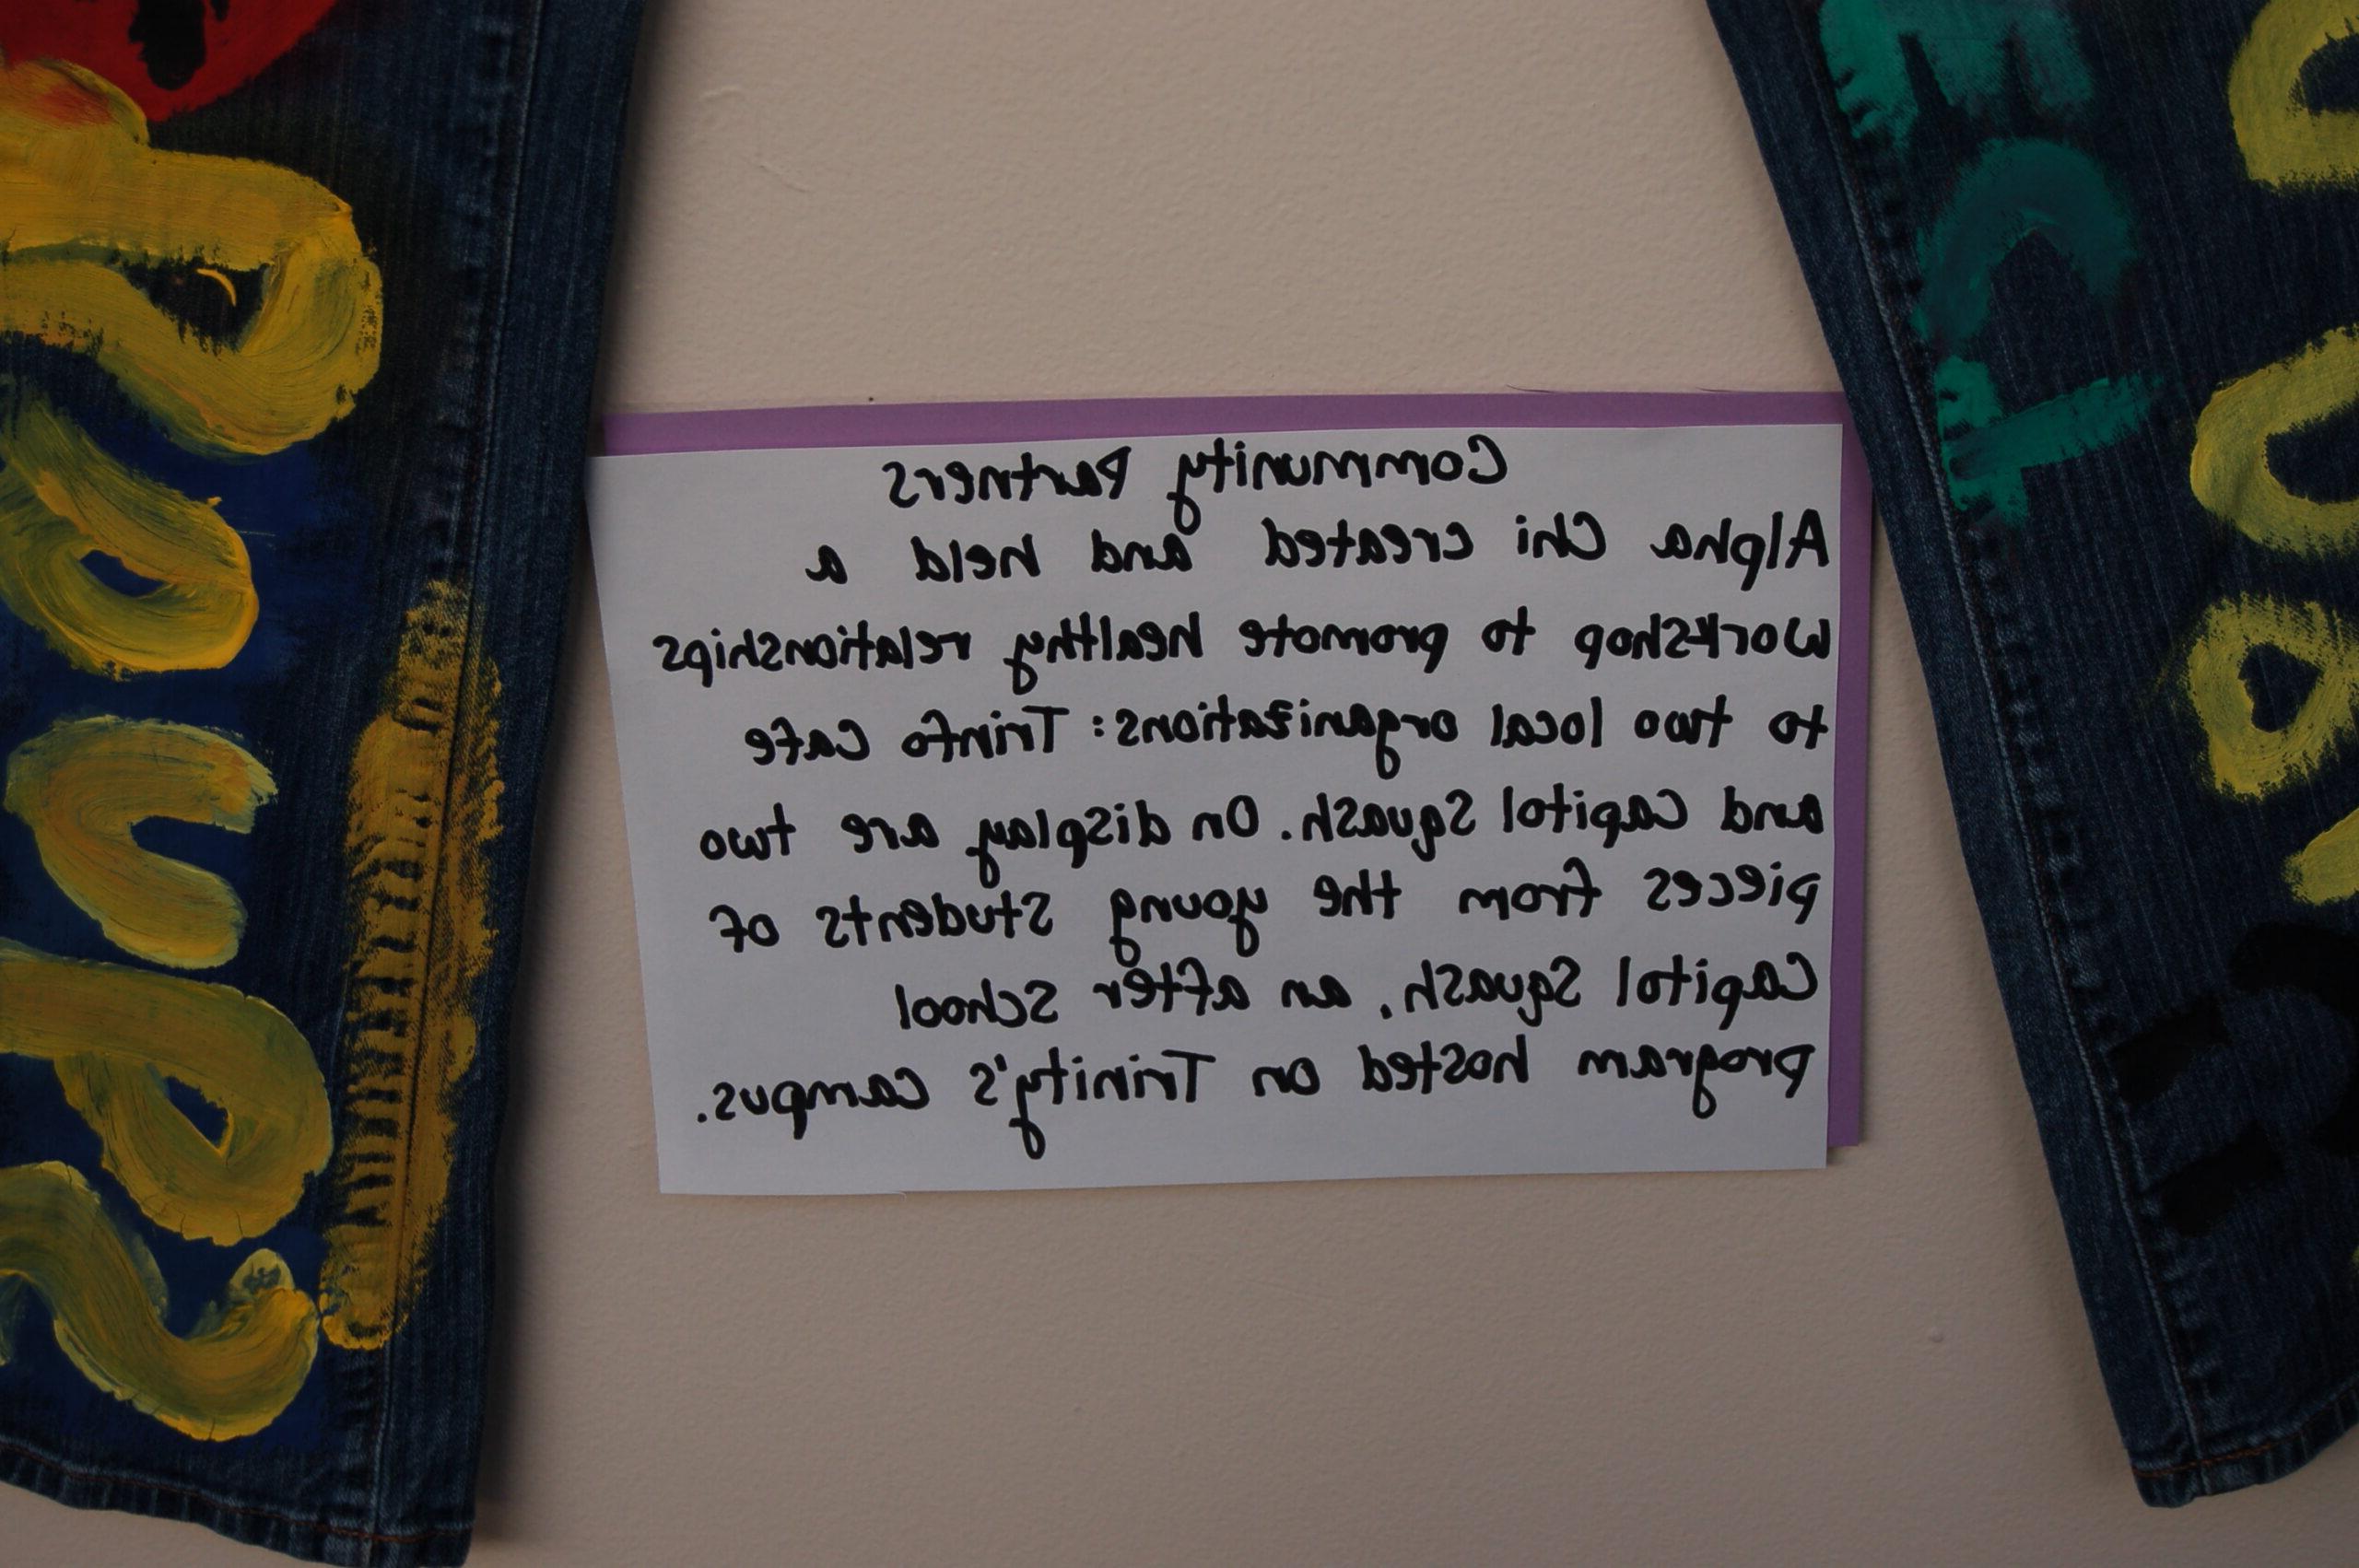 Community Partners
Alpha Chi created and held a
workshop to promote healthy relationships
to two local organizations: Trinfo Cafe
and Capitol Squash. On display are two
pieces from the young students of
Capitol Squash, an after school
program hosted on Trinity's campus.